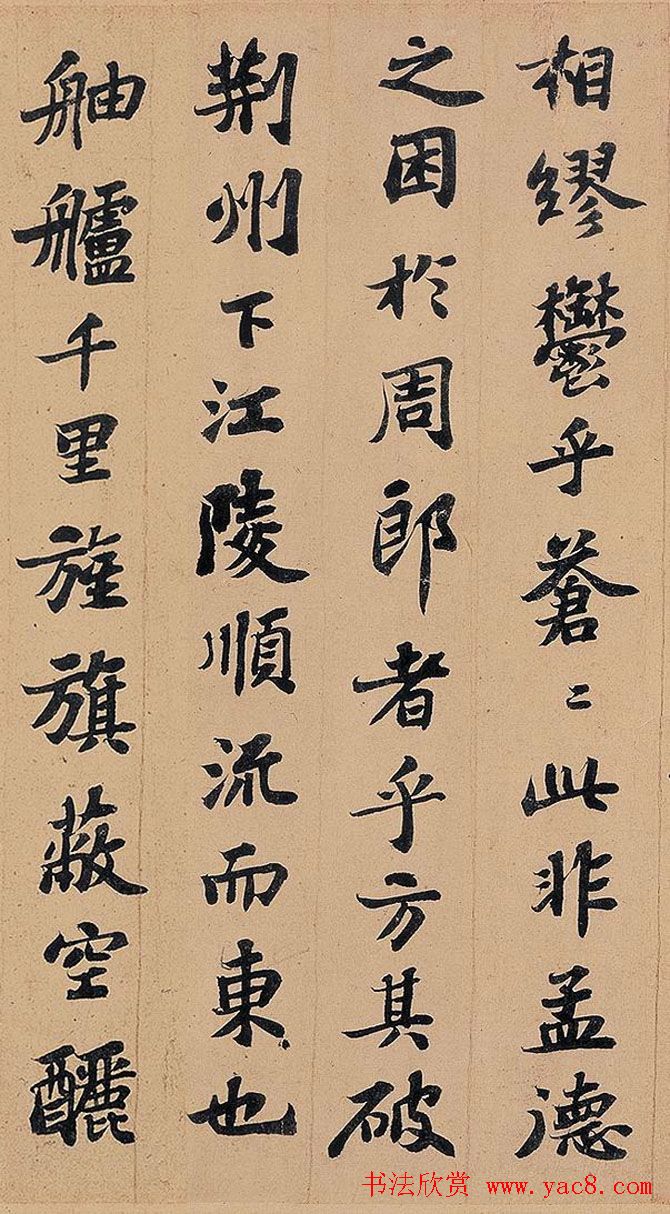 相繆鬱乎蒼〻此非孟德
之困於周郎者乎方其破
荊州下江陵順流而東也
舳艫千里旌旗蔽空釃
书法欣赏 www.yac8.com